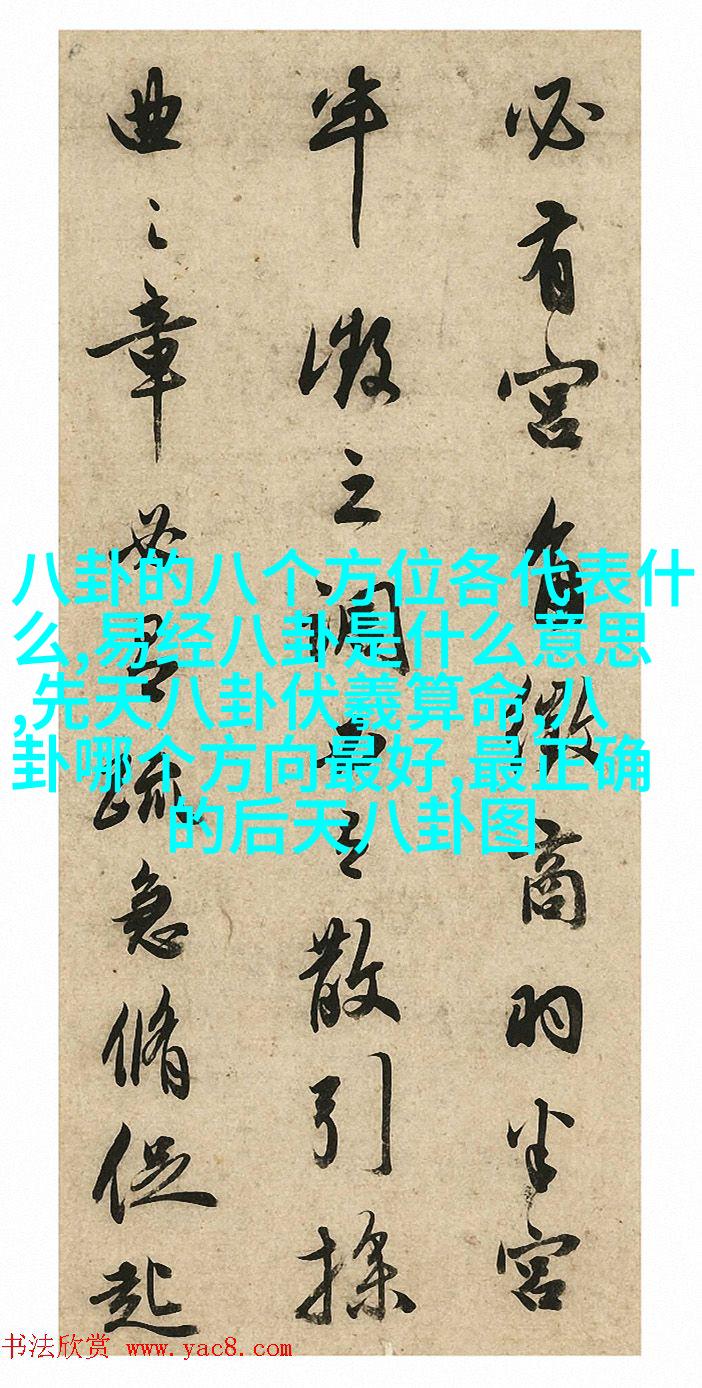 必有宮角徵商羽半宮
半徵之調之散引操
曲之章疏急脩促起
八卦的八个方位各代表什
么,易经八卦是什么意思
,先天八卦伏羲算命,八
卦哪个方向最好,最正确
的后天八卦图
书法欣赏 www.yac8.com